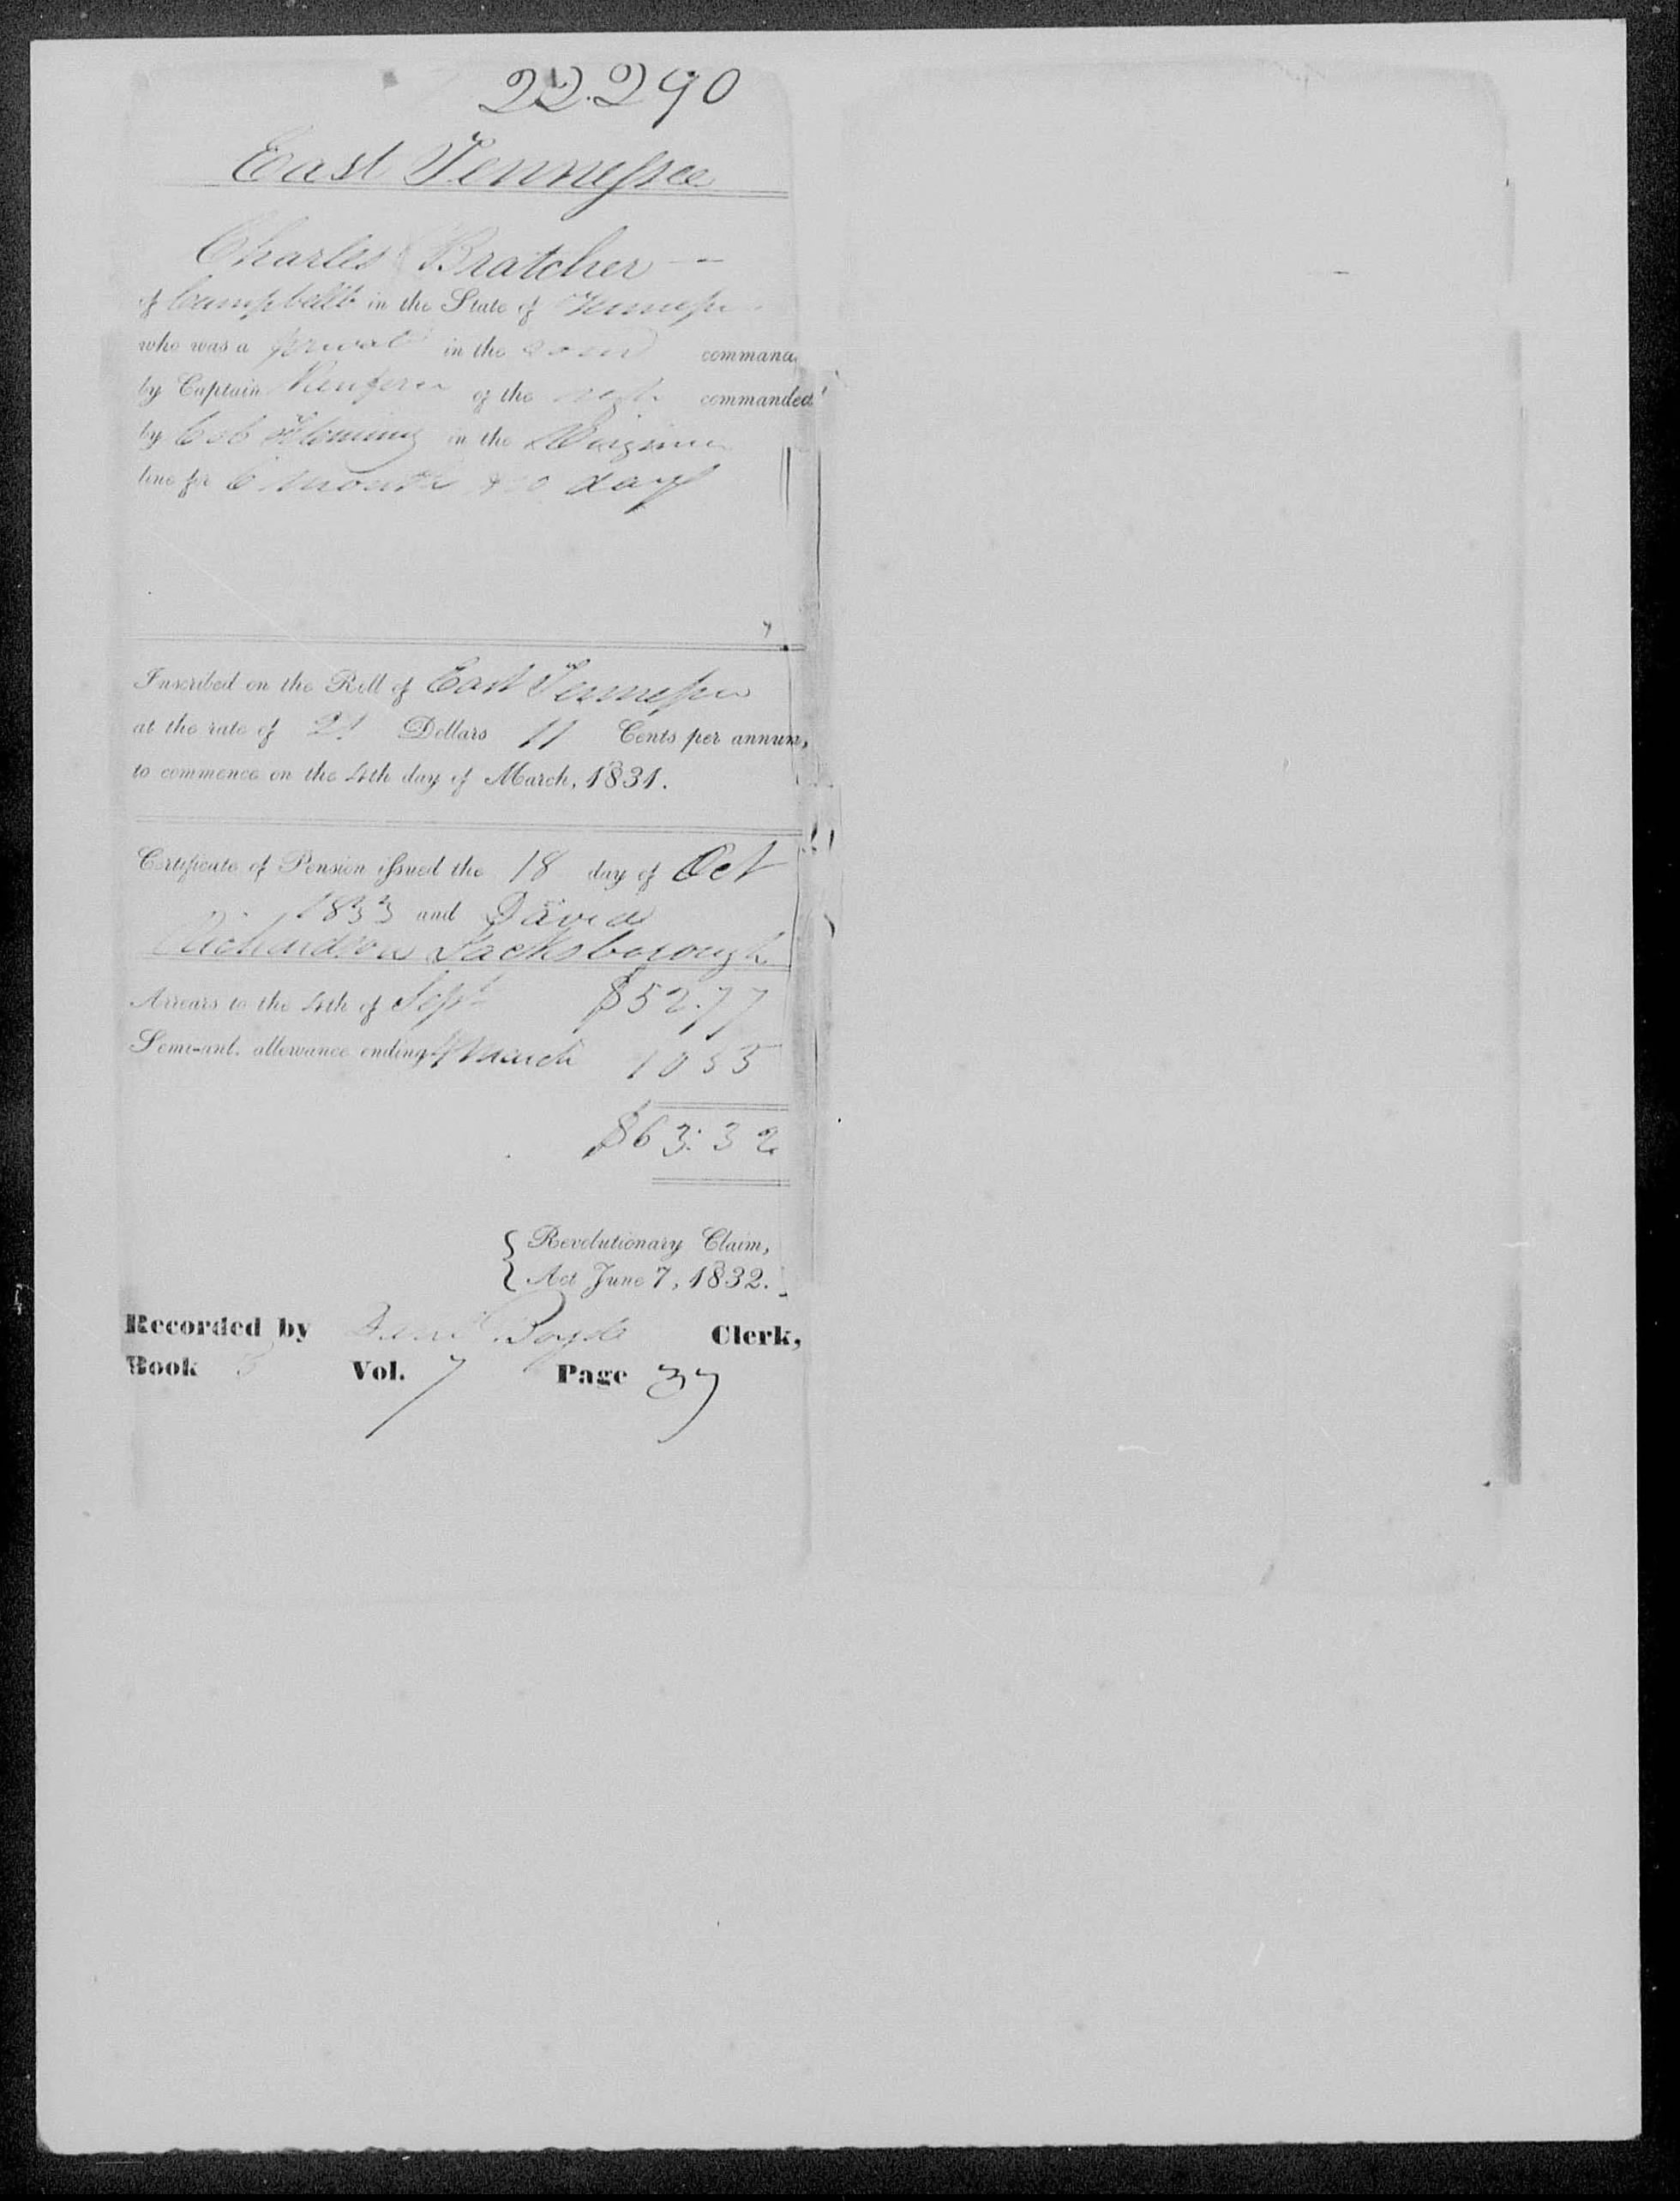 22.290
East Tennessee
Charles Bratcher
of Campbell in the State of Tennessee
who was a private in the command
by Captain of the commanded
by Col Fleming in the Virginia
line for 6 months days
Inscribed on the Roll of East Tennessee
at the rate of 21 Dollars 11 Cents per annum,
to commence on the 4th day of March, 1831.
Certificate of Pension issued the 18 day of Oct
1833 and David
Richardson Jacksborough
Arrears to the 4th of Sept $52.77
Semi-anl. allowance ending 4 March 10 55
$63.32
Revolutionary Claim,
Act June 7, 1832.
Recorded by Danl Boyd Clerk,
Book Vol. 7 Page 37